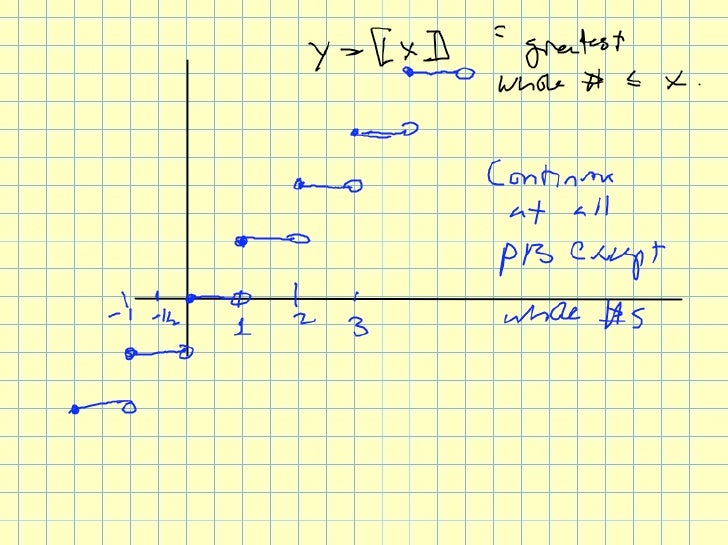 y = [[x]] = greatest
whole # ≤ x.
Continuous
at all
pts except
whole #s
-1 -1/2 1 2 3